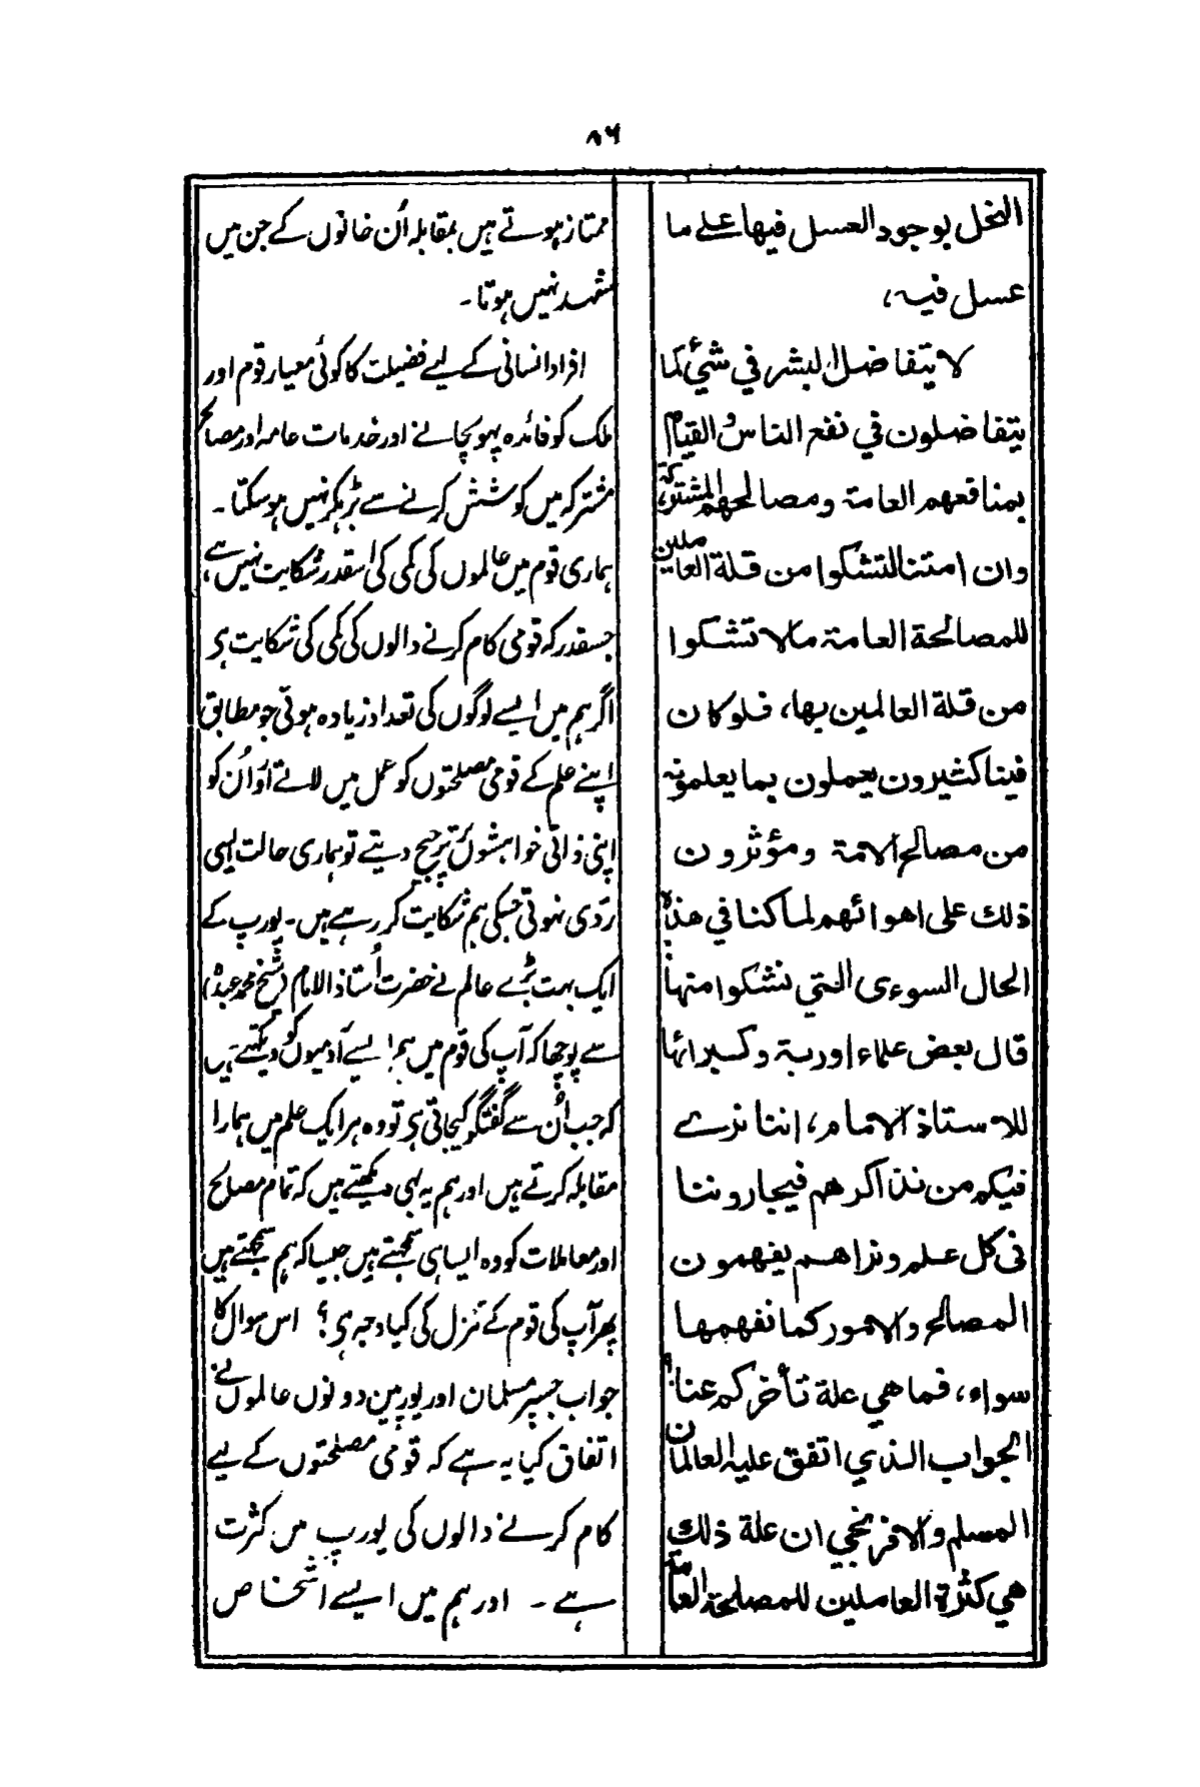 ۸۶
النحل بوجود العسل فيها على ما
عسل فيه،
لا يتفاضل البشر في شيء كما
يتفاضلون في نفع الناس والقيام
بمنافعهم العامة ومصالحهم المشتركة،
وان امتنا لتشكوا من قلة العاملين
للمصالحة العامة مالا تشكوا
من قلة العالمين بها، فلو كان
فينا كثيرون يعملون بما يعلمونه
من مصالح الامة ومؤثرون
ذلك على اهوائهم لما كنا في هذه
الحال السوءى التي نشكوا منها،
قال بعض علماء اوربة وكبرائها
للاستاذ الامام، اننا نرے
فيكم من نذاكرهم فيجاروننا
فى كل علم ونراهم يفهمون
المصالح والامور كما نفهمها
سواء، فما هي علة تأخركم عنا؟
الجواب الذي اتفق عليه العالمان
المسلم والافرنجي ان علة ذلك
هي كثرة العاملين للمصلحة العامة
ممتاز ہوتے ہیں بمقابلہ اُن خانوں کے جن میں
شہد نہیں ہوتا۔
افراد انسانی کے لیے فضیلت کا کوئی معیار قوم اور
ملک کو فائدہ پہونچانے اور خدمات عامہ اور مصالح
مشترکہ میں کوشش کرنے سے بڑہکر نہیں ہوسکتا۔
ہماری قوم میں عالموں کی کمی کی اسقدر شکایت نہیں ہے،
جسقدر کہ قومی کام کرنے والوں کی کمی کی شکایت ہی
اگر ہم میں ایسے لوگوں کی تعداد زیادہ ہوتی جو مطابق
اپنے علم کے قومی مصلحتوں کو عمل میں لاتے اور اُن کو
اپنی ذاتی خواہشوں پر ترجیح دیتے تو ہماری حالت ایسی
ردی نہوتی جسکی ہم شکایت کر رہے ہیں۔ یورپ کے
ایک بہت بڑے عالم نے حضرت اُستاذ الامام (شیخ محمد عبدہ)
سے پوچھا کہ آپ کی قوم میں ہم ایسے آدمیوں کو دیکھتے ہیں
کہ جب اُن سے گفتگو کیجاتی ہی تو وہ ہر ایک علم میں ہمارا
مقابلہ کرتے ہیں اور ہم یہ بھی دیکھتے ہیں کہ تمام مصالح
اور معاملات کو وہ ایسا ہی سمجھتے ہیں جیسا کہ ہم سمجھتے ہیں
پھر آپ کی قوم کے تنزل کی کیا وجہ ہی؟ اس سوال کا
جواب جسپر مسلمان اور یورپین دونوں عالموں نے
اتفاق کیا یہ ہے کہ قومی مصلحتوں کے لیے
کام کرنے والوں کی یورپ میں کثرت
ہے۔ اور ہم میں ایسے اشخاص